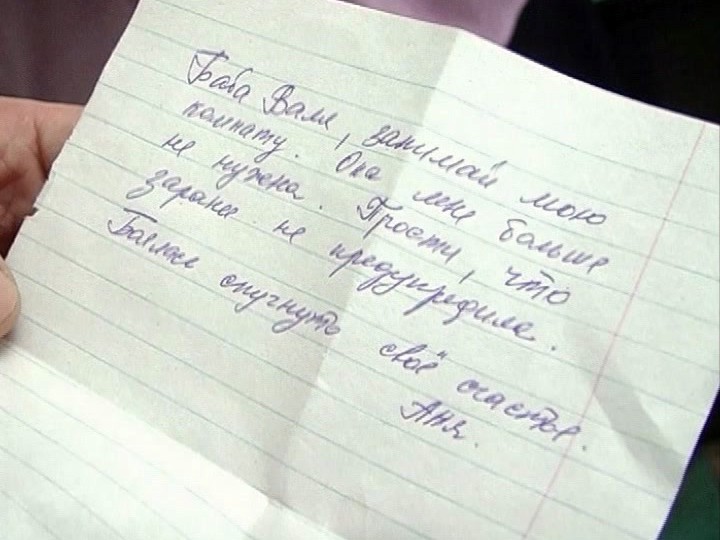 Баба Валя, занимай мою
комнату. Она мне больше
не нужна. Прости, что
заранее не предупредила.
Боялась спугнуть своё счастье.
Аня.